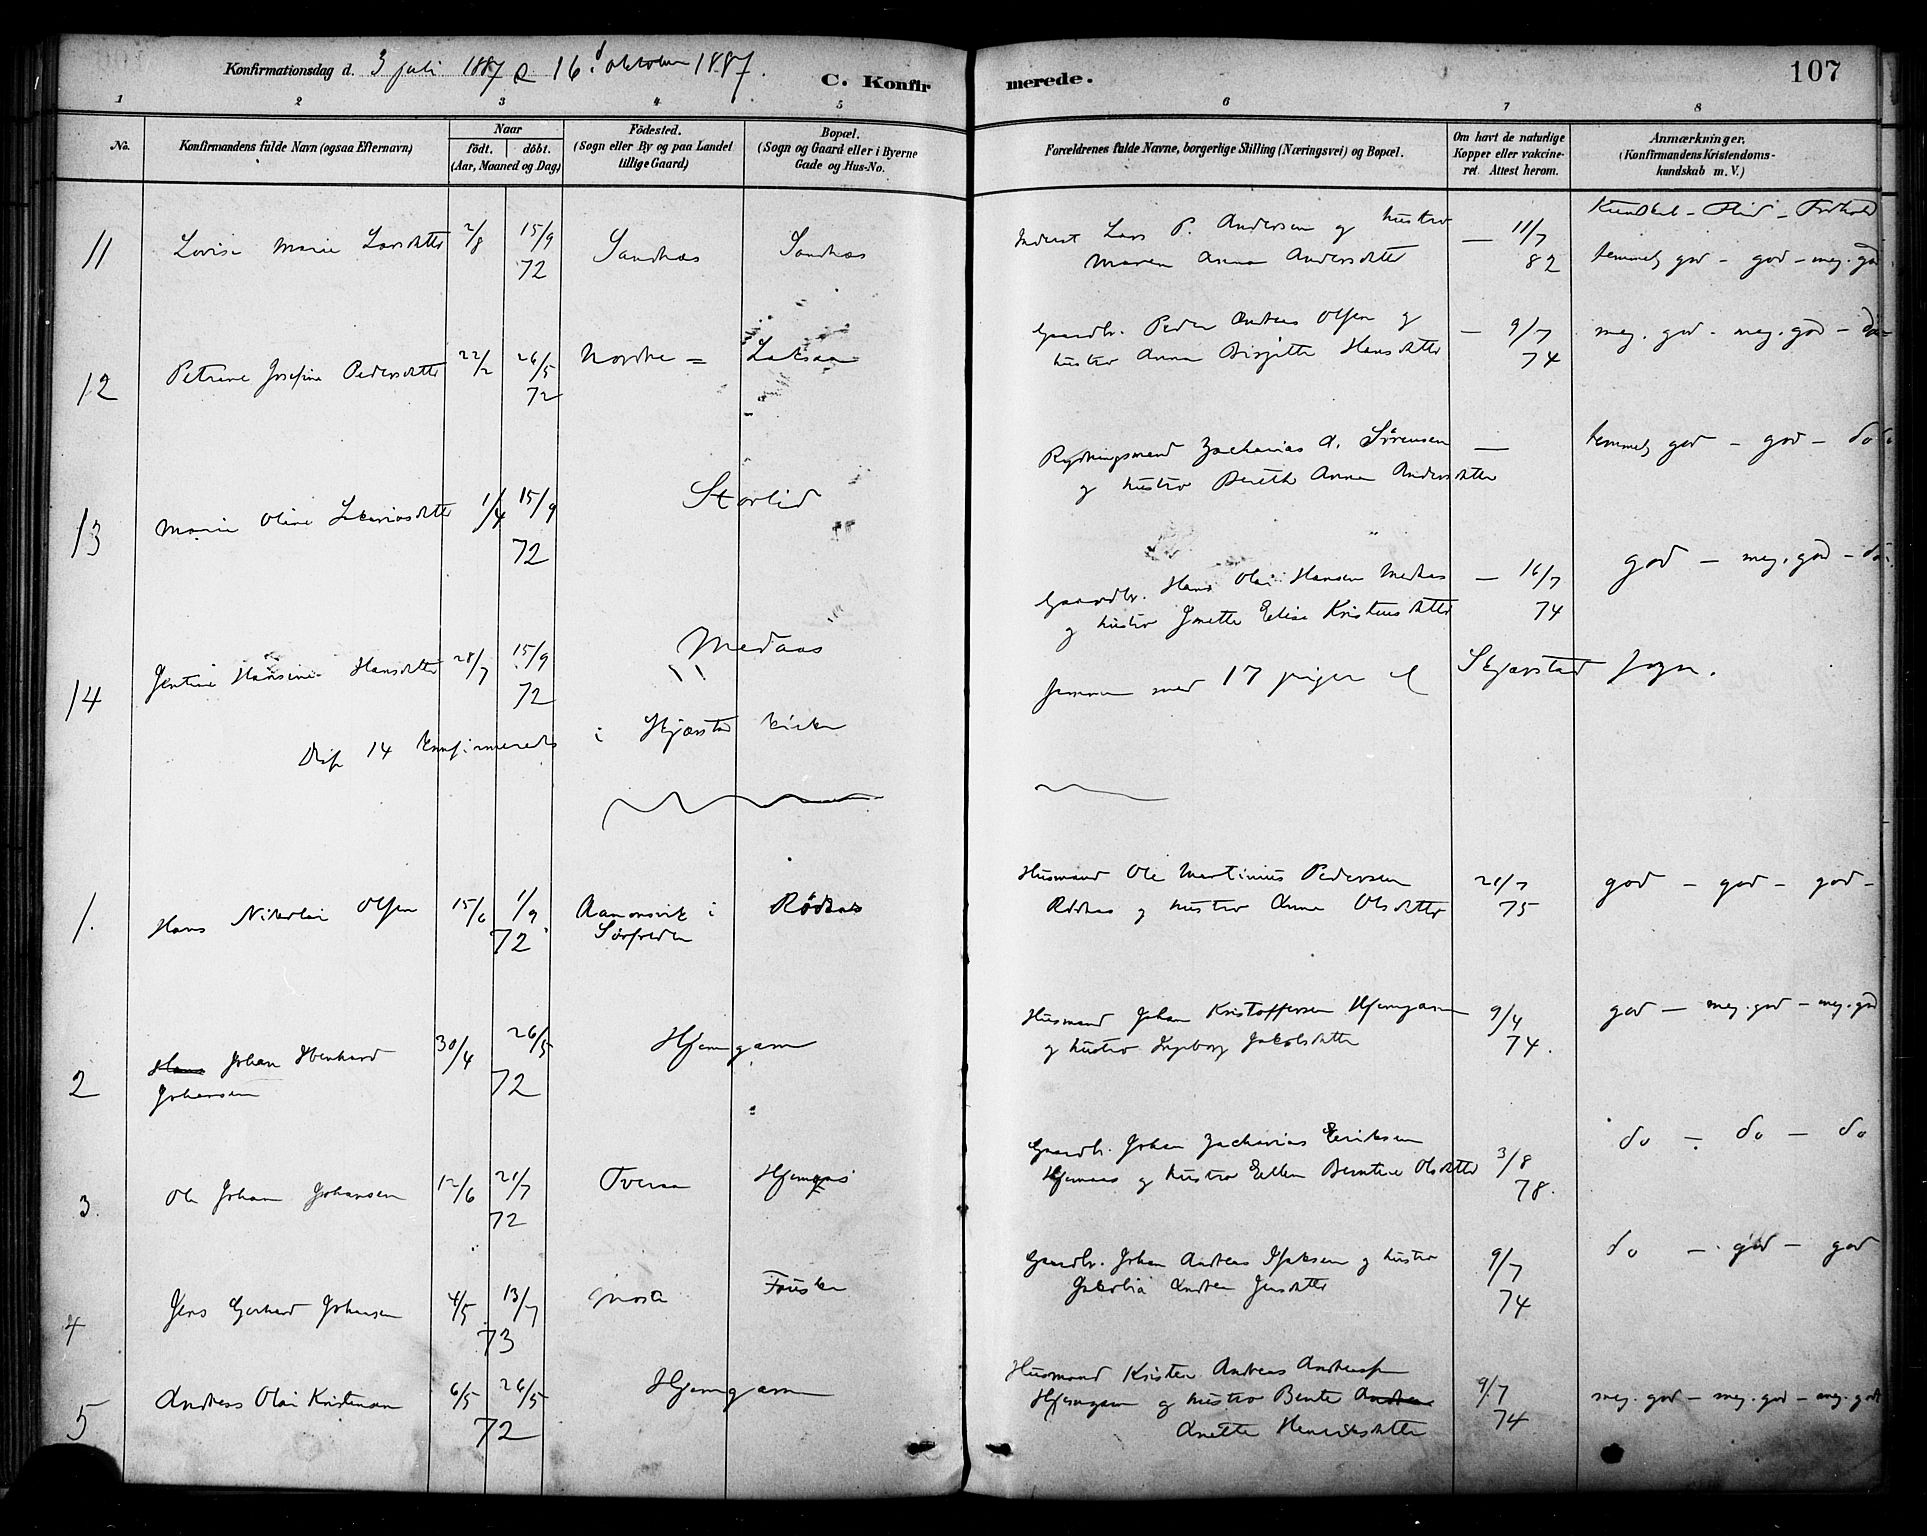 Konfirmationsdag d. 3 juli 1887 & 16d oktober 1887.
C. Konfirmerede.
107
1 2 3 4 5 6 7 8
No.
Konfirmandens fulde Navn (ogsaa Efternavn)
Naar
födt. döbt.
(Aar, Maaned og Dag)
Födested.
(Sogn eller By og paa Landet
tillige Gaard)
Bopæl.
(Sogn og Gaard eller i Byerne
Gade og Hus-No.
Forældrenes fulde Navne, borgerlige Stilling (Næringsvei) og Bopæl.
Om havt de naturlige
Kopper eller vakcine-
ret. Attest herom.
Anmærkninger.
(Konfirmandens Kristendoms-
kundskab m. V.)
Kundskab - Flid - Forhold
11 Lovise Marie Larsdatter 2/8 15/9 72 Sandnæs Sandnæs
Inderst Lars P. Andersen og hustro
Maren Anna Andersdatter
— 11/7 82
temmelig god - god - meg. god
12 Petrine Josefine Pedersdatter 22/2 26/5 72 Nordre = Laksaa
Gaardbr. Peder Andreas Olsen og
hustro Anna Birgitte Hansdatter
— 9/7 74
meg. god - meg. god - do
13 Marie Oline Zakariasdatter 1/4 15/9 72 Storlid
Rydningsmand Zacharias A. Sörensen
og hustro Bereth Anna Andersdatter
—
temmelig god - god - do
14 Jentine Hansine Hansdatter 28/7 15/9 72 Medaas
Gaardbr. Hans Olai Hansen Medaas
og hustro Jonette Elise Kristensdatter
— 16/7 74
god - meg. god - do
Disse 14 konfirmeredes i Skjærstad kirke
sammen med 17 piger af Skjærstad sogn.
1. Hans Nikolai Olsen 15/6 1/9 72 Aamonsvik i
Sörfolden
Rødaas
Husmand Ole Martinius Pedersen
Rödaas og hustro Anna Olsdatter
21/7 75
god - god - god -
2 Hans Johan Ebenhard
Johansen
30/4 26/5 72 Hjemgam
Husmand Johan Kristoffersen Hjemgam
og hustro Ingeborg Jakobsdatter
9/4 74.
god - meg. god - meg. god
3 Ole Johan Johansen 12/6 21/7 72 Tveraa Hjemaas
Gaardbr. Johan Zacharias Eriksen
Hjemaas og hustro Ellen Berntine Olsdatter
3/8 78.
do - do - do
4 Jens Gerhard Johansen 4/5 13/7 73 Fauske
Gaardbr. Johan Andreas Isaksen og hustro
Jakobia Andrea Jensdatter
9/7 74
do - god - god
5 Andreas Olai Kristensen 6/5 26/5 72 Hjemgam
Husmand Kristen Andreas Andreassen
Hjemgam og hustro Bente Andrea
Anette Henriksdatter
9/7 74
meg. god - meg. god - meg. god